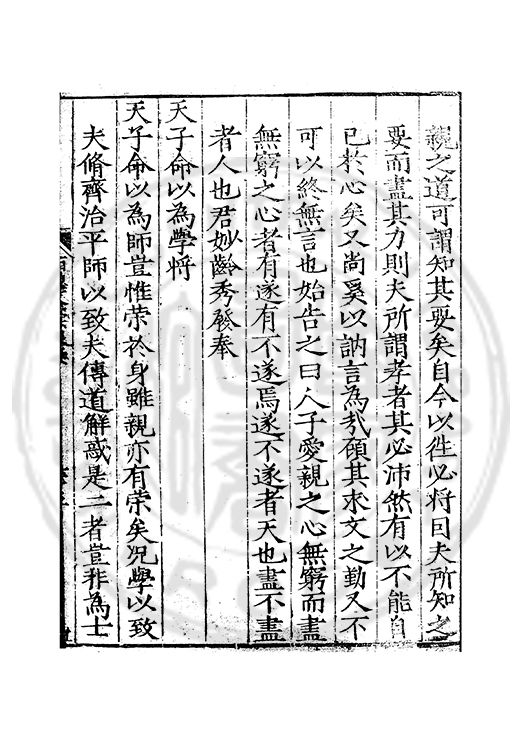 親之道可謂知其要矣自今以徃必將曰夫所知之
要而盡其力則夫所謂孝者其必沛然有以不能自
已於心矣又尚奚以訥言為㢤顧其求文之勤又不
可以終無言也始告之曰人子愛親之心無窮而盡
無窮之心者有遂有不遂焉遂不遂者天也盡不盡
者人也君妙齡秀發奉
天子命以為學將
天子命以為師豈惟荣於身雖親亦有荣矣况學以致
夫脩齊治平師以致夫傳道解惑是二者豈非為士